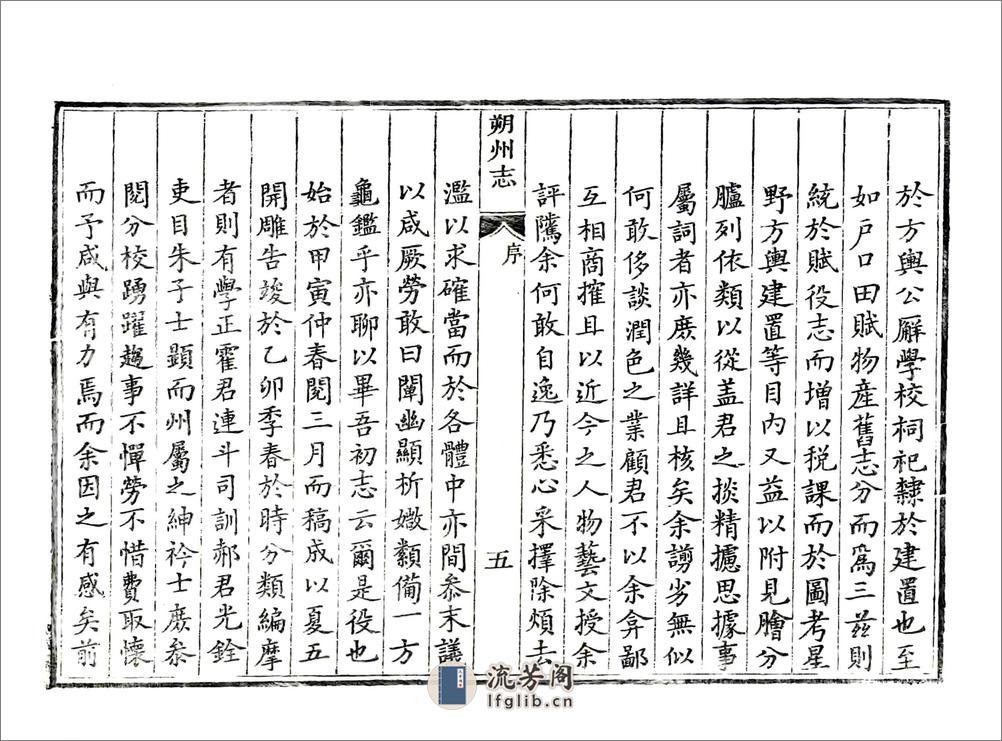 於方輿公廨學校祠祀隸於建置也至
如戸口田賦物産舊志分而爲三兹則
統於賦役志而增以税課而於圖考星
野方輿建置等目内又益以附見膾分
臚列依類以從盖君之掞精攄思據事
屬詞者亦庶幾詳且核矣余謭劣無似
何敢侈談潤色之業顧君不以余弇鄙
互相商搉且以近今之人物藝文授余
評隲余何敢自逸乃悉心釆擇除煩去
朔州志
序
五
濫以求確當而於各體中亦間叅末議
以成厥勞敢曰闡幽顯析媺纇備一方
龜鑑乎亦聊以畢吾初志云爾是役也
始於甲寅仲春閱三月而稿成以夏五
開雕告竣於乙卯季春於時分類編摩
者則有學正霍君連斗司訓郝君光銓
吏目朱子士顯而州屬之紳衿士庶叅
閱分校踴躍趨事不憚勞不惜費取懷
而予咸與有力焉而余因之有感矣前
流芳阁
lfglib.cn